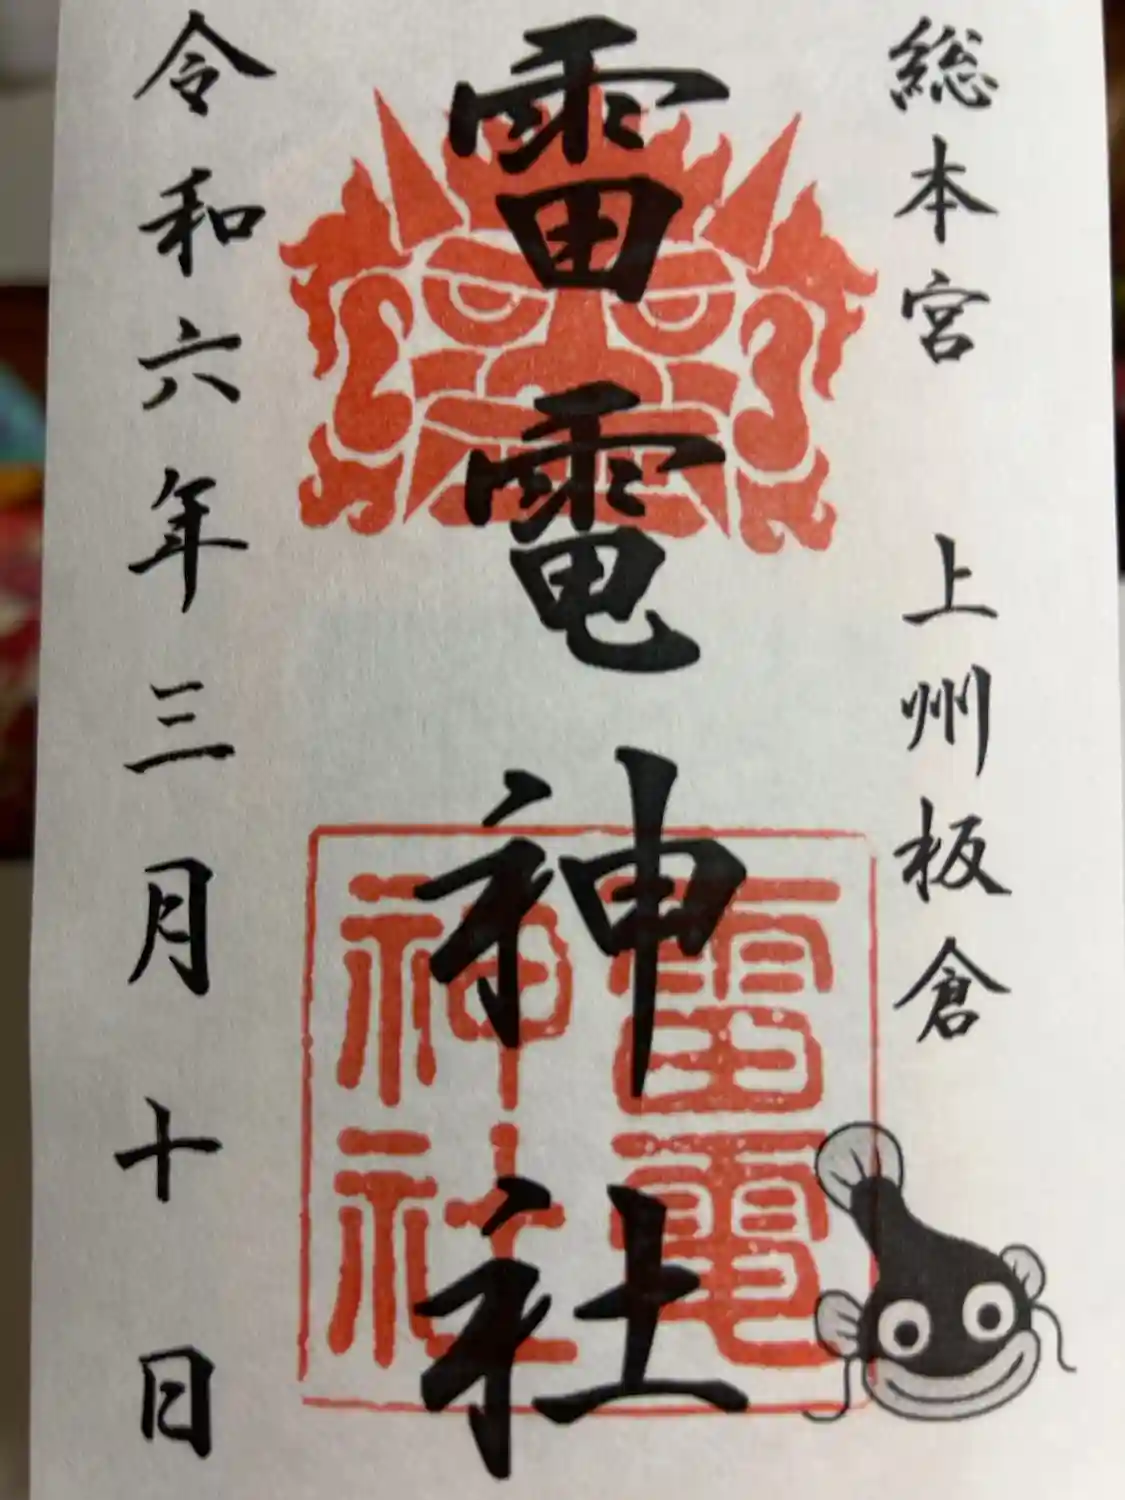 総本宮 上州板倉
雷電神社
雷電
神社
令和六年三月十日